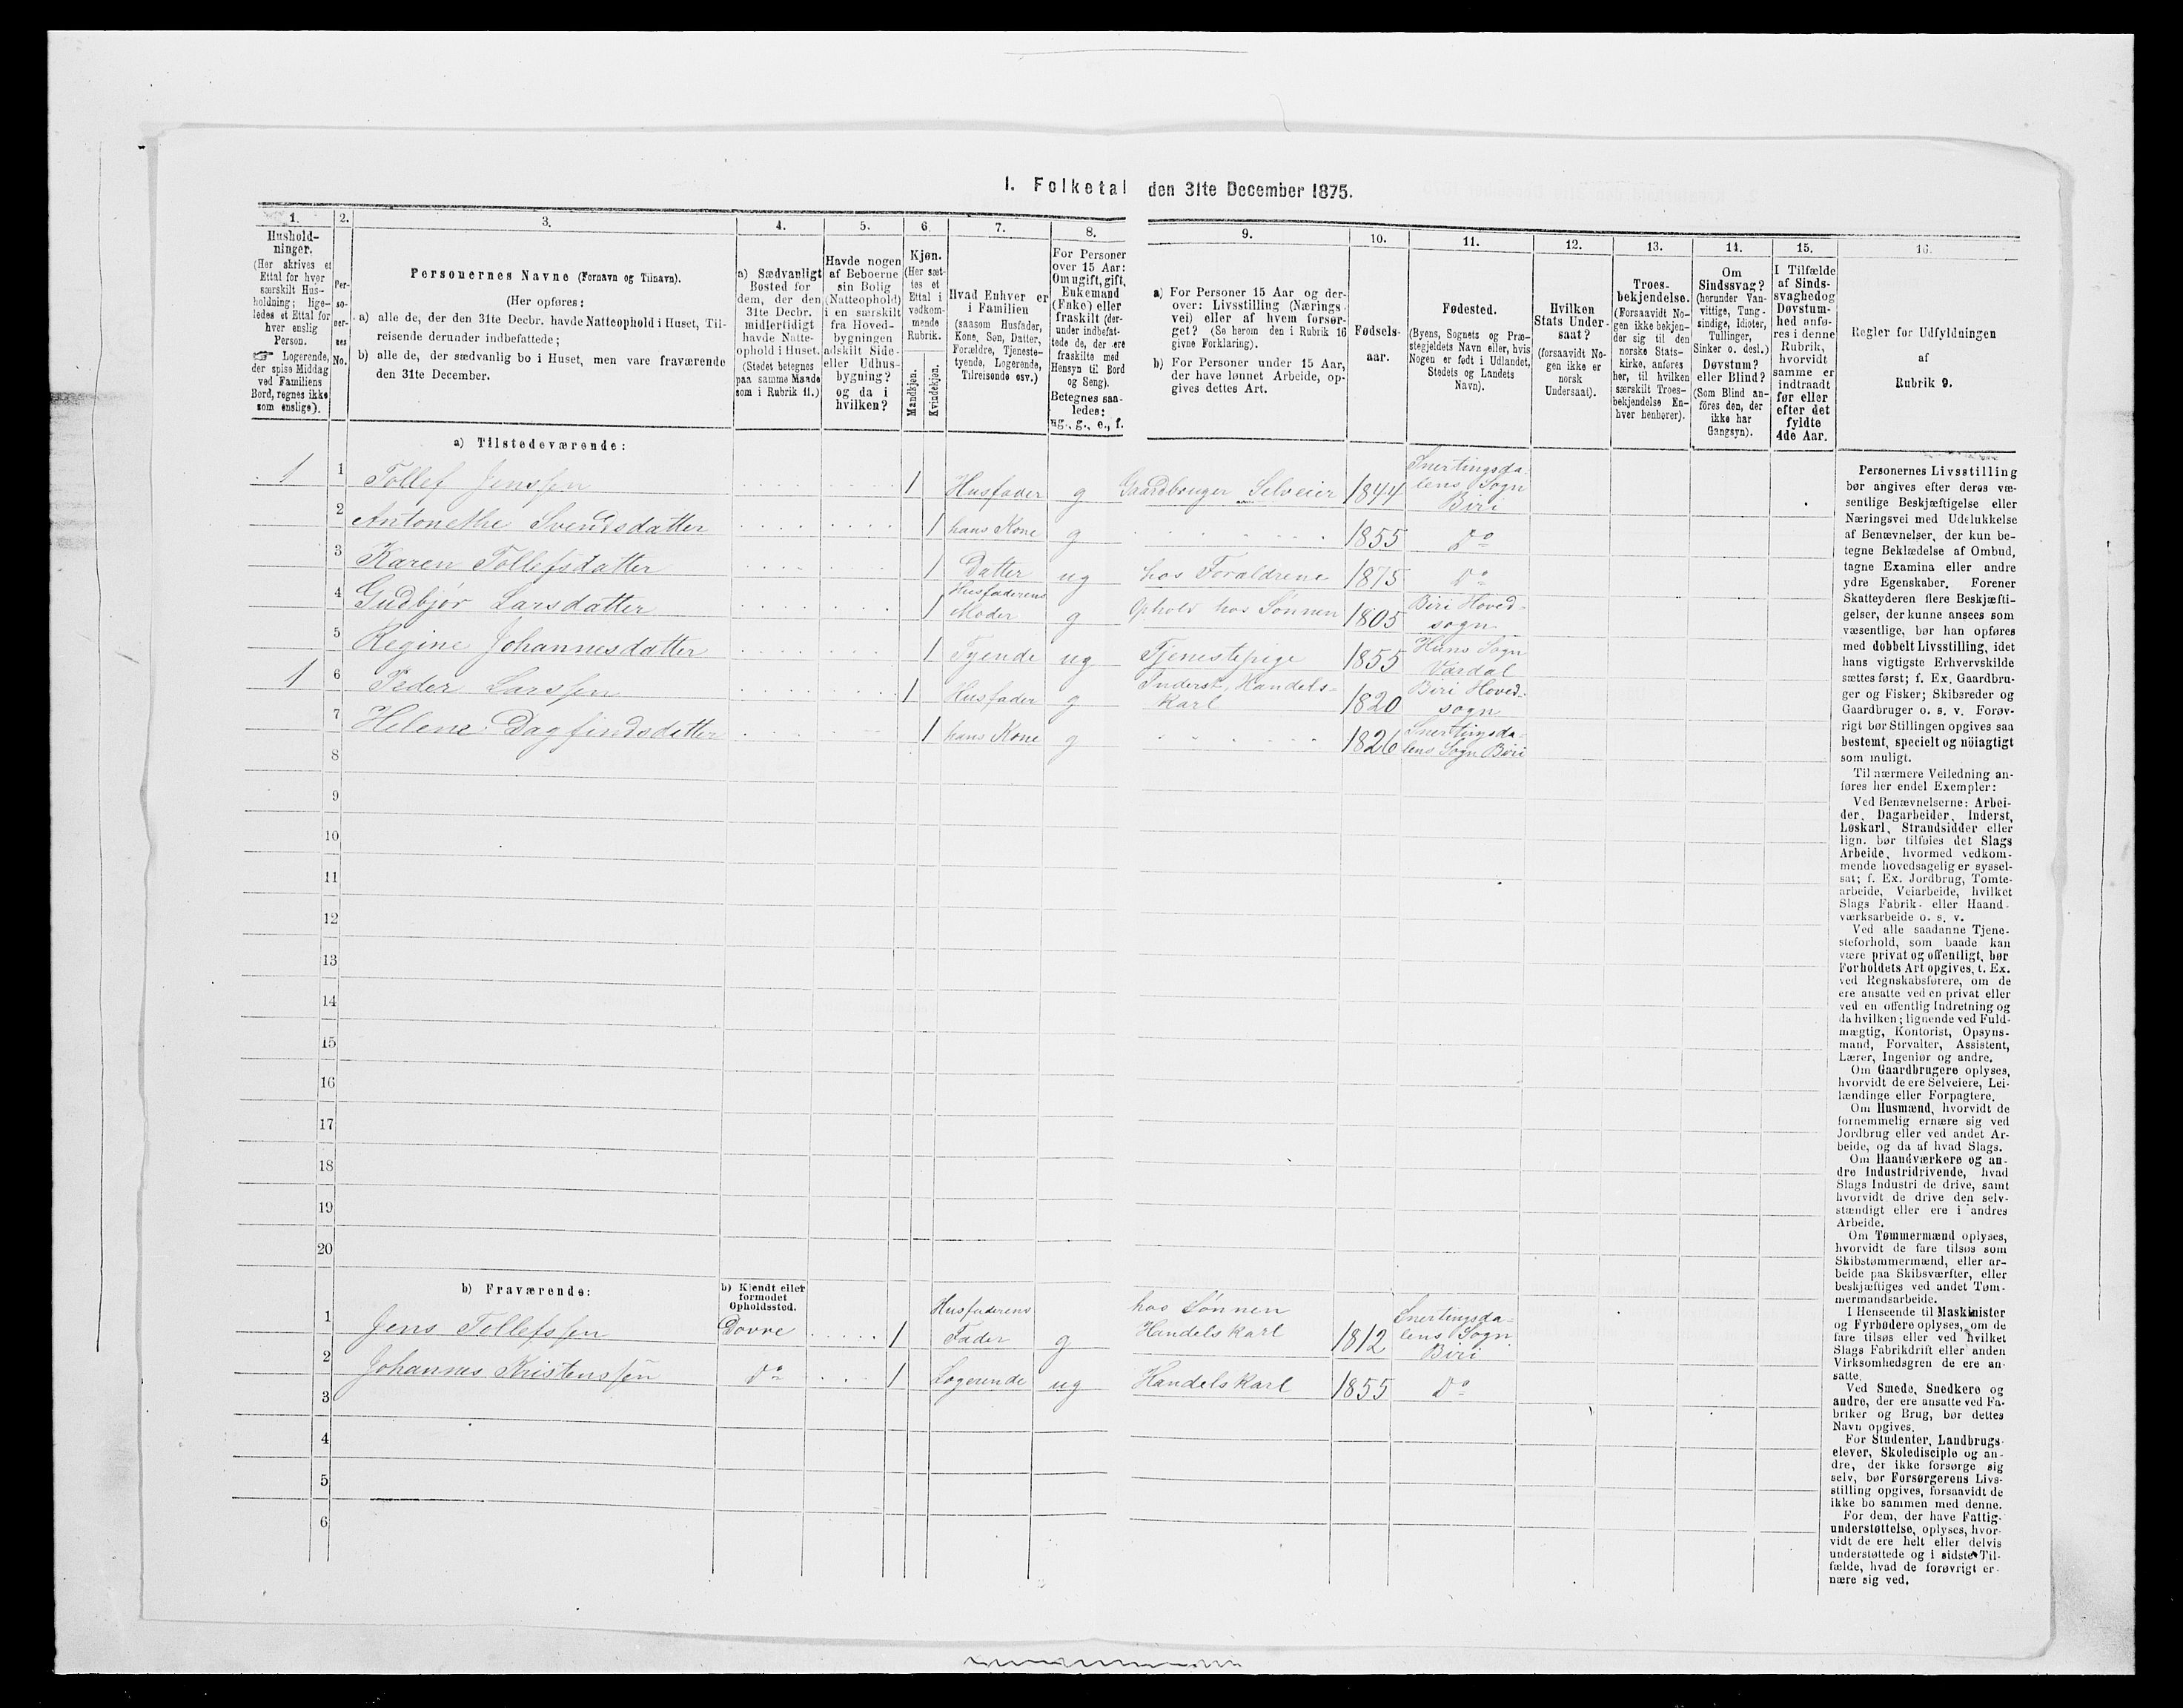 I. Folketal den 31te December 1875.
1.
Hushold-
ninger.
(Her skrives et
Ettal for hver
særskilt Hus-
holdning; lige-
ledes et Ettal for
hver enslig
Person.
☞ Logerende,
der spise Middag
ved Familiens
Bord, regnes ikke
som enslige).
2.
Per-
so-
ner-
nes
No.
3.
Personernes Navne (Fornavn og Tilnavn).
(Her opføres:
a) alle de, der den 31te Decbr. havde Natteophold i Huset, Til-
reisende derunder indbefattede;
b) alle de, der sædvanlig bo i Huset, men vare fraværende
den 31te December.
4.
a) Sædvanligt
Bosted for
dem, der den
31te Decbr.
midlertidigt
havde Natte-
ophold i Huset.
(Stedet betegnes
paa samme Maade
som i Rubrik 11.)
5.
Havde nogen
af Beboerne
sin Bolig
(Natteophold)
i en særskilt
fra Hoved-
bygningen
adskilt Side-
eller Udhus-
bygning?
og da i
hvilken?
6.
Kjøn.
(Her sæt-
tes et
Ettal i
vedkom-
mende
Rubrik.
Mandkjøn.
Kvindekjøn.
7.
Hvad Enhver er
i Familien
(saasom Husfader,
Kone, Søn, Datter,
Forældre, Tjeneste-
tyende, Logerende,
Tilreisende osv.)
8.
For Personer
over 15 Aar:
Om ugift, gift,
Enkemand
(Enke) eller
fraskilt (der-
under indbefat-
tede de, der ere
fraskilte med
Hensyn til Bord
og Seng).
Betegnes saa-
ledes:
ug., g., e., f.
9.
a) For Personer 15 Aar og der-
over: Livsstilling (Nærings-
vei) eller af hvem forsør-
get? (Se herom den i Rubrik 16
givne Forklaring).
b) For Personer under 15 Aar,
der have lønnet Arbeide, op-
gives dettes Art.
10.
Fødsels-
aar.
11.
Fødested.
(Byens, Sognets og Præ-
stegjeldets Navn eller, hvis
Nogen er født i Udlandet,
Stedets og Landets
Navn).
12.
Hvilken
Stats Under-
saat?
(forsaavidt No-
gen ikke er
norsk
Undersaat).
13.
Troes-
bekjendelse.
(Forsaavidt No-
gen ikke bekjen-
der sig til den
norske Stats-
kirke, anføres
her, til hvilken
særskilt Troes-
bekjendelse En-
hver henhører).
14.
Om
Sindssvag?
(herunder Van-
vittige, Tung-
sindige, Idioter,
Tullinger,
Sinker o. desl.)
Døvstum?
eller Blind?
(Som Blind an-
føres den, der
ikke har
Gangsyn).
15.
I Tilfælde
af Sinds-
svaghed og
Døvstum-
hed anfø-
res i denne
Rubrik,
hvorvidt
samme er
indtraadt
før eller
efter det
fyldte
4de Aar.
16.
Regler for Udfyldningen
af
Rubrik 9.
a) Tilstedeværende:
1 1 Tollef Jenssen 1 Husfader g Gaardbruger Selveier 1844 Snertingsda-
lens Sogn
Biri
2 Antonethe Svendsdatter 1 hans Kone g 1855 Do
3 Karen Tollefsdatter 1 Datter ug hos Foraldrene 1875 Do
4 Gudbjør Larsdatter 1 Husfaderens
Moder g Ophold hos Sønnen 1805 Biri Hoved-
sogn
5 Regine Johannesdatter 1 Tyende ug Tjenestepige 1855 Huns Sogn
Vardal
1 6 Peder Larssen 1 Husfader g Inderst, Handels-
karl 1820 Biri Hoved-
sogn
7 Helene Dagfindsdatter 1 hans Kone g 1826 Snertingsda-
lens Sogn Biri
8
9
10
11
12
13
14
15
16
17
18
19
20
b) Fraværende:
b) Kjendt eller
formodet
Opholdssted.
1 Jens Tollefssen Dovre 1 Husfaderens
Fader g hos Sønnen
Handelskarl 1812 Snertingsda-
lens Sogn
Biri
2 Johannes Kristenssen do 1 Logerende ug Handelskarl 1855 Do
3
4
5
6
Personernes Livsstilling
bør angives efter deres væ-
sentlige Beskjæftigelse eller
Næringsvei med Udelukkelse
af Benævnelser, der kun be-
tegne Beklædelse af Ombud,
tagne Examina eller andre
ydre Egenskaber. Forener
Skatteyderen flere Beskjæfti-
gelser, der kunne ansees som
væsentlige, bør han opføres
med dobbelt Livsstilling, idet
hans vigtigste Erhvervskilde
sættes først; f. Ex. Gaardbru-
ger og Fisker; Skibsreder og
Gaardbruger o. s. v. Forøv-
rigt bør Stillingen opgives saa
bestemt, specielt og nöiagtigt
som muligt.
Til nærmere Veiledning an-
føres her endel Exempler:
Ved Benævnelserne: Arbei-
der, Dagarbeider, Inderst,
Løskarl, Strandsidder eller
lign. bør tilføies det Slags
Arbeide, hvormed vedkom-
mende hovedsagelig er syssel-
sat; f. Ex. Jordbrug, Tomte-
arbeide, Veiarbeide, hvilket
Slags Fabrik- eller Haand-
værksarbeide o. s. v.
Ved alle saadanne Tjene-
steforhold, som baade kan
være privat og offentligt, bør
Forholdets Art opgives, t. Ex.
ved Regnskabsførere, om de
ere ansatte ved en privat eller
ved en offentlig Indretning og
da hvilken; lignende ved Fuld-
mægtig, Kontorist, Opsyns-
mand, Forvalter, Assistent,
Lærer, Ingeniør og andre.
Om Gaardbrugere oplyses,
hvorvidt de ere Selveiere, Lei-
lændinge eller Forpagtere.
Om Husmænd, hvorvidt de
fornemmelig ernære sig ved
Jordbrug eller ved andet Ar-
beide, og da af hvad Slags.
Om Haandværkere og an-
dre Industridrivende, hvad
Slags Industri de drive, samt
hvorvidt de drive den selv-
stændigt eller ere i andres
Arbeide.
Om Tømmermænd oplyses,
hvorvidt de fare tilsøs som
Skibstømmermænd, eller ar-
beide paa Skibsværfter, eller
beskjæftiges ved andet Tøm-
mermandsarbeide.
I Henseende til Maskinister
og Fyrbødere oplyses, om de
fare tilsøs eller ved hvilket
Slags Fabrikdrift eller anden
Virksomhedsgren de ere an-
satte.
Ved Smede, Snedkere og
andre, der ere ansatte ved Fa-
briker og Brug, bør dettes
Navn opgives.
For Studenter, Landbrugs-
elever, Skoledisciple og an-
dre, der ikke forsørge sig
selv, bør Forsørgerens Livs-
stilling opgives, forsaavidt de
ikke bo sammen med denne.
For dem, der have Fattig-
understøttelse, oplyses, hvor-
vidt de ere helt eller delvis
understøttede og i sidste Til-
fælde, hvad de forøvrigt er-
nære sig ved.